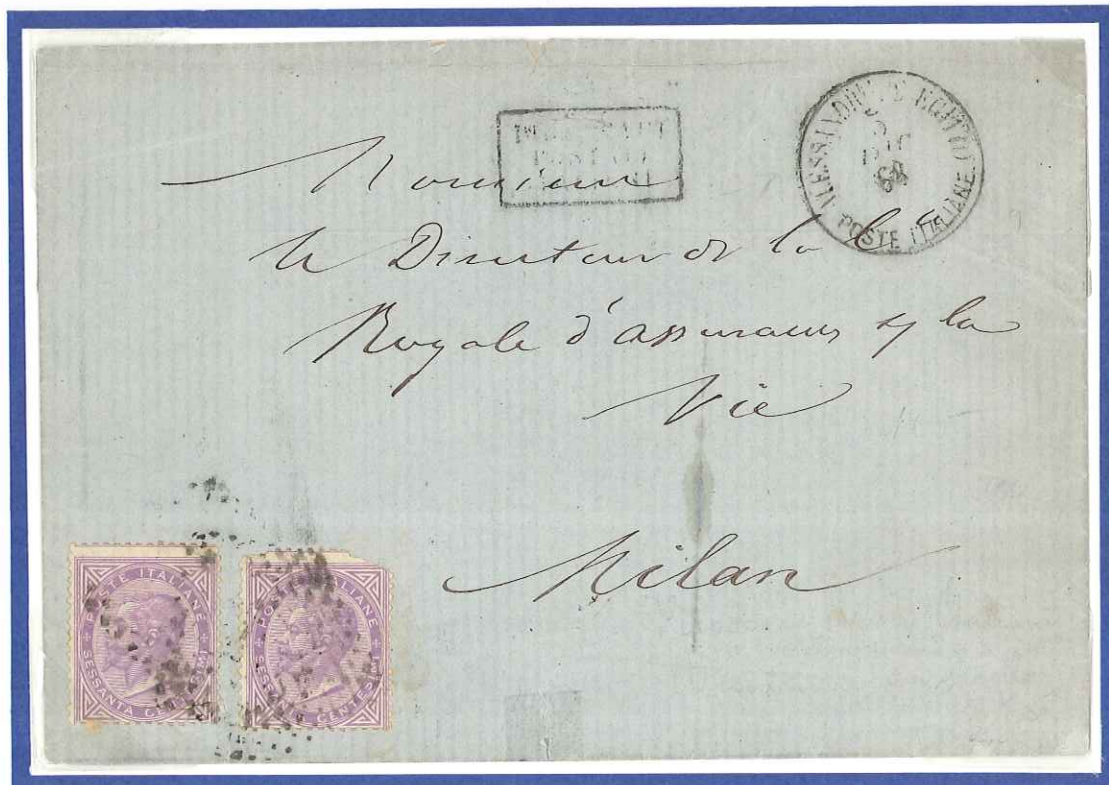 PIROSCAFI
POSTALI
ITALIANI
ALESSANDRIA D'EGITTO
DIC
POSTE ITALIANE
Monsieur
le Directeur de la Cie
Royale d'assurances s/ la
Vie
Milan
POSTE ITALIANE
SESSANTA CENTESIMI
POSTE ITALIANE
SESSANTA CENTESIMI